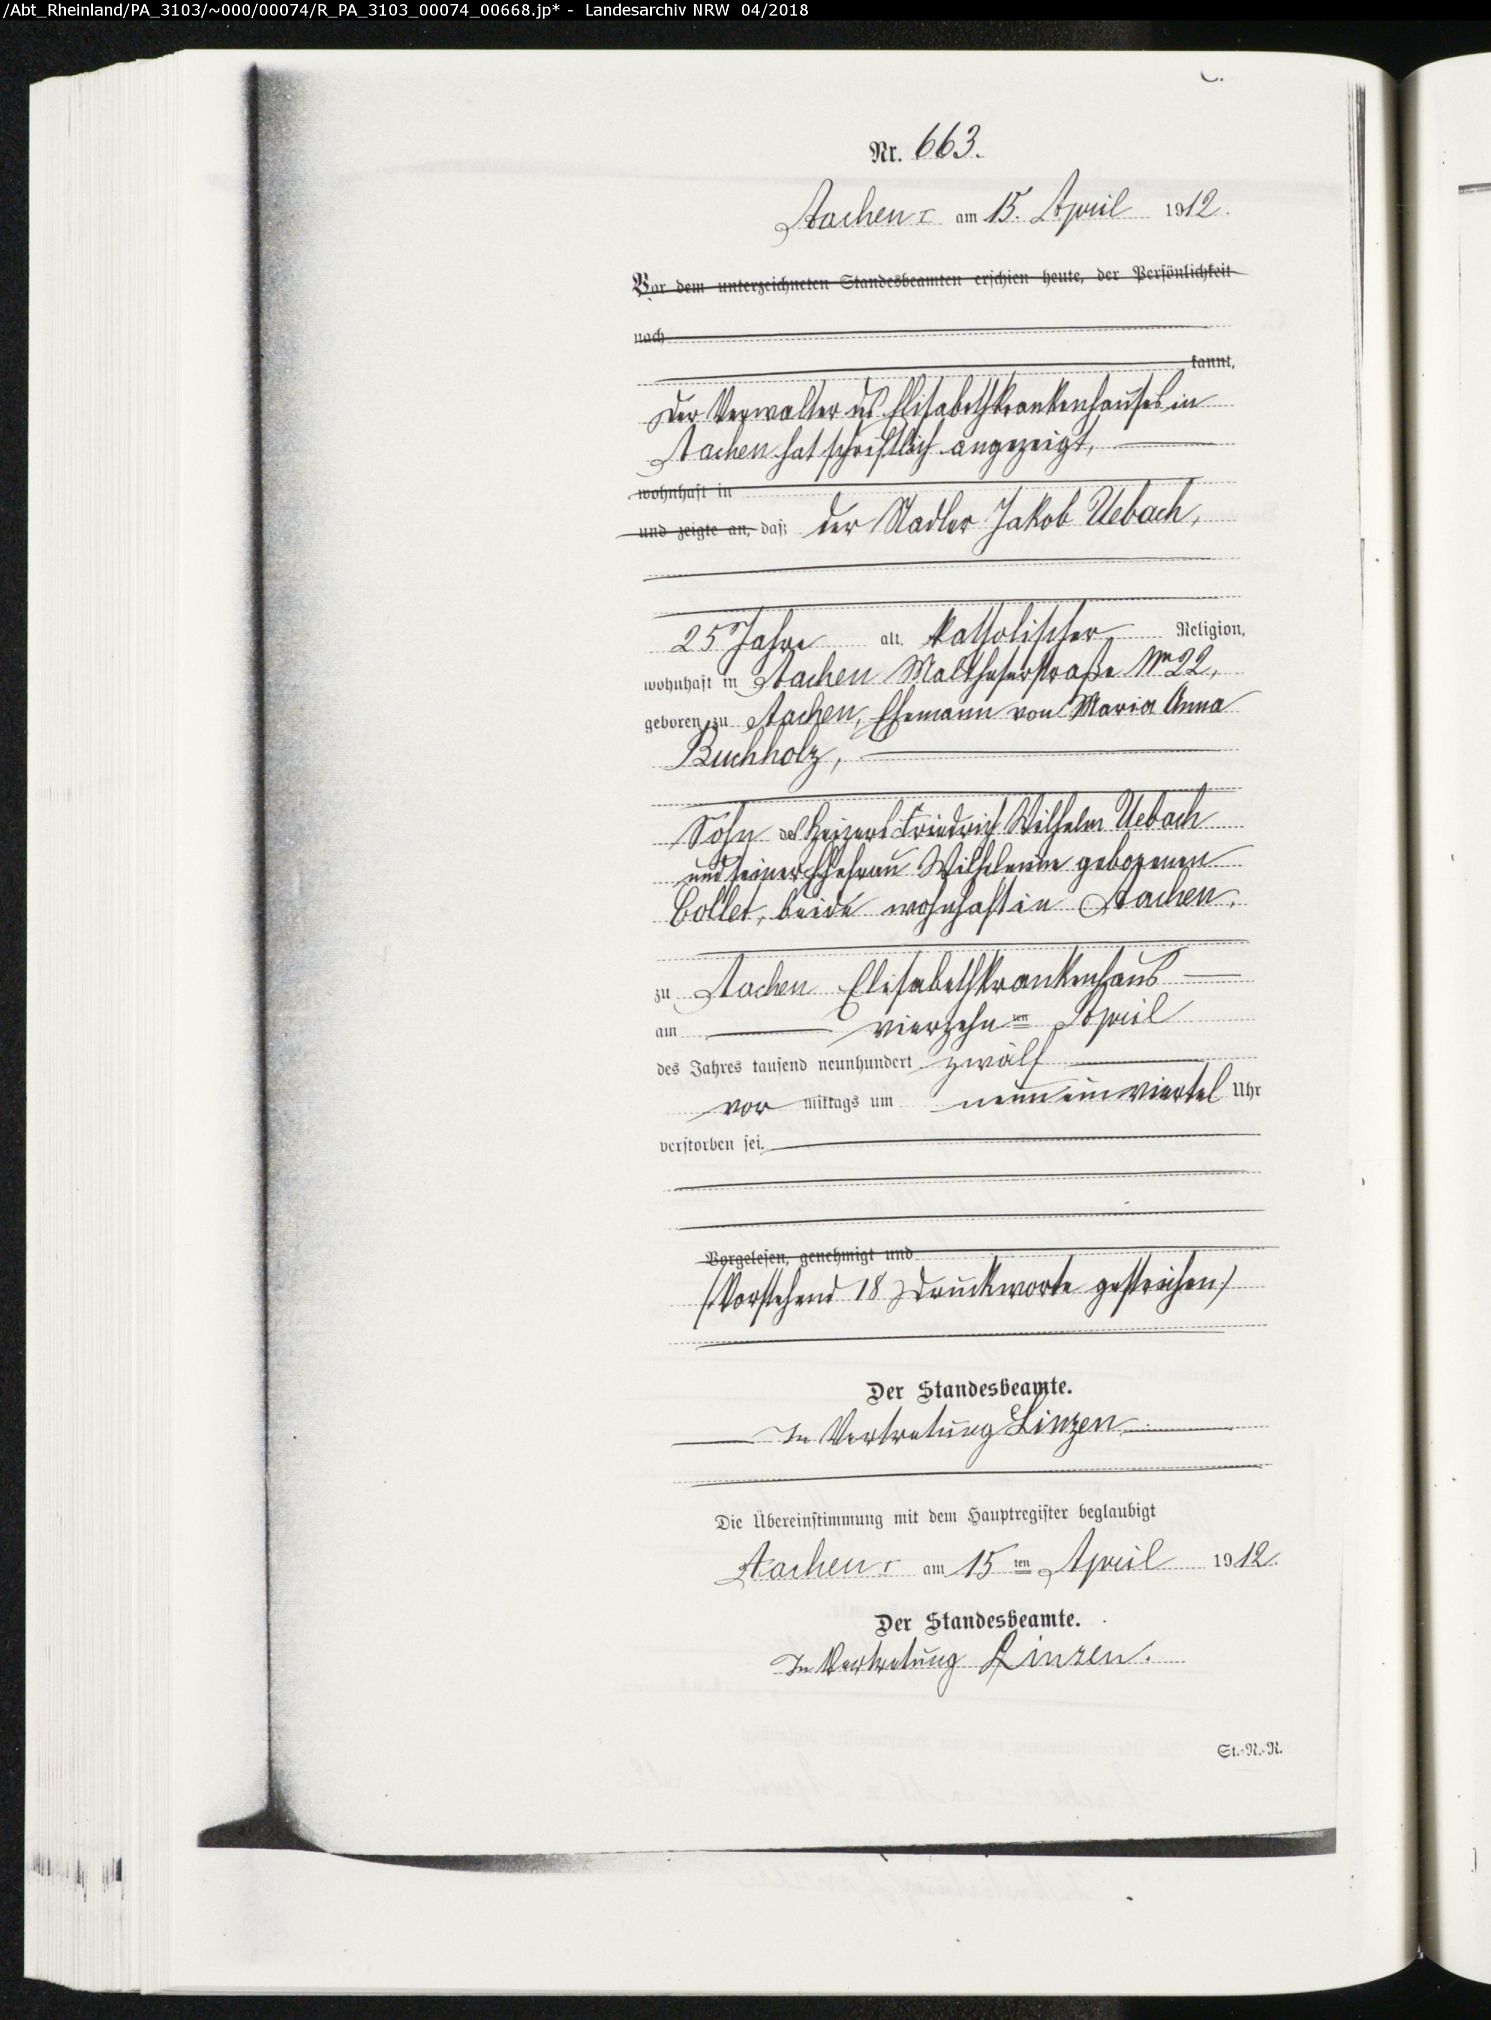 /Abt_Rheinland/PA_3103/~000/00074/R_PA_3103_00074_00668.jp* - Landesarchiv NRW 04/2018
C.
Nr. 663.
Aachen am 15. April 1912.
Vor dem unterzeichneten Standesbeamten erschien heute, der Persönlichkeit
nach
kannt,
Der Verwalter des Elisabethkrankenhauses in
Aachen hat schriftlich angezeigt,
wohnhaft in
und zeigte an, daß der Nadler Jakob Uebach,
25 Jahre alt, katholischer Religion,
wohnhaft in Aachen Maltheserstraße Nr 22,
geboren zu Aachen, Ehemann von Maria Anna
Buchholz,
Sohn des Heizers Friedrich Wilhelm Uebach
und seiner Ehefrau Wilhelmine geborenen
Collet, beide wohnhaft in Aachen.
zu Aachen Elisabethkrankenhaus
am vierzehnten April
des Jahres tausend neunhundert zwölf
vor mittags um neun ein viertel Uhr
verstorben sei.
Vorgelesen, genehmigt und
(Vorstehend 18 Druckworte gestrichen.)
Der Standesbeamte.
In Vertretung Linzen.
Die Übereinstimmung mit dem Hauptregister beglaubigt
Aachen am 15ten April 1912.
Der Standesbeamte.
In Vertretung Linzen.
St.-N.-R.